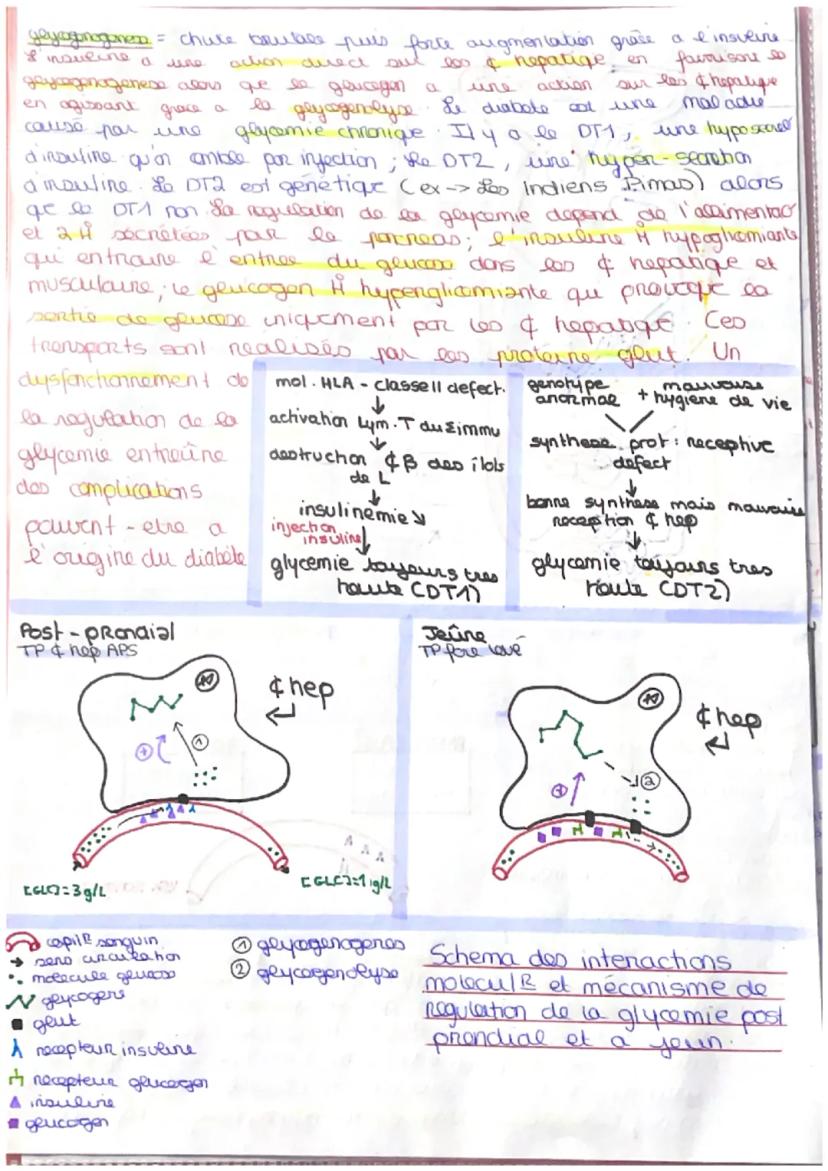 glycogenogenese = chute brutale puis forte augmentation grâce a l'insuline
L'insuline a une action direct sur les ¢ hepatiqe en favorisant la
glycogenogenese alors que le glucagon a une action sur les ¢ hepatique
en agissant grace a la glycogenolyse. Le diabete est une maladie
causé par une glycemie chronique. Il y a le DT1, une hyposecret
d'insuline qu'on comble par injection, le DT2, une hyper-secretion
d'insuline. Le DT2 est génétique (ex -> Les Indiens Pimas) alors
que le DT1 non. La regulation de la glycemie depend de l'alimentao
et 2 H secrétées par le pancreas; l'insuline H hypoglicmiante
qui entraine l'entree du glucose dans les ¢ hepatique et
musculaire, le glucogen H hyperglicemiante qui provoque la
sortie de glucose iniquement par les ¢ hepatique. Ces
transports sont realisés par les proteine glut. Un
dysfonctionnement de
la regulation de la
glycemie entraîne
des complications
peuvent-etre a
l'origine du diabète
mol. HLA - classe II defect.
activation Lym. T du Σ immu
destruction ¢β des îlots
de L
insulinemie ↘
injection
insuline
glycemie toujours tres
haute (DT1)
genotype + mauvaise
anormal hygiene de vie
synthese prot: receptive
defect
bonne synthese mais mauvaise
reception ¢ hep
glycemie toujours tres
haute (DT2)
Post-prandial
TP ¢ hep APS
¢ hep
+
1
[GLC]=3g/L
[GLC]=1g/L
Jeûne
TP foie lavé
¢ hep
+
2
capilR sanguin
sens circulation
molecule glucose
glycogene
glut
recepteur insuline
recepteur glucagen
insuline
glucagen
1 glycogenogenes
2 glycogenolyse
Schema des interactions
moleculR et mécanisme de
regulation de la glycemie post
prandial et a jeun.